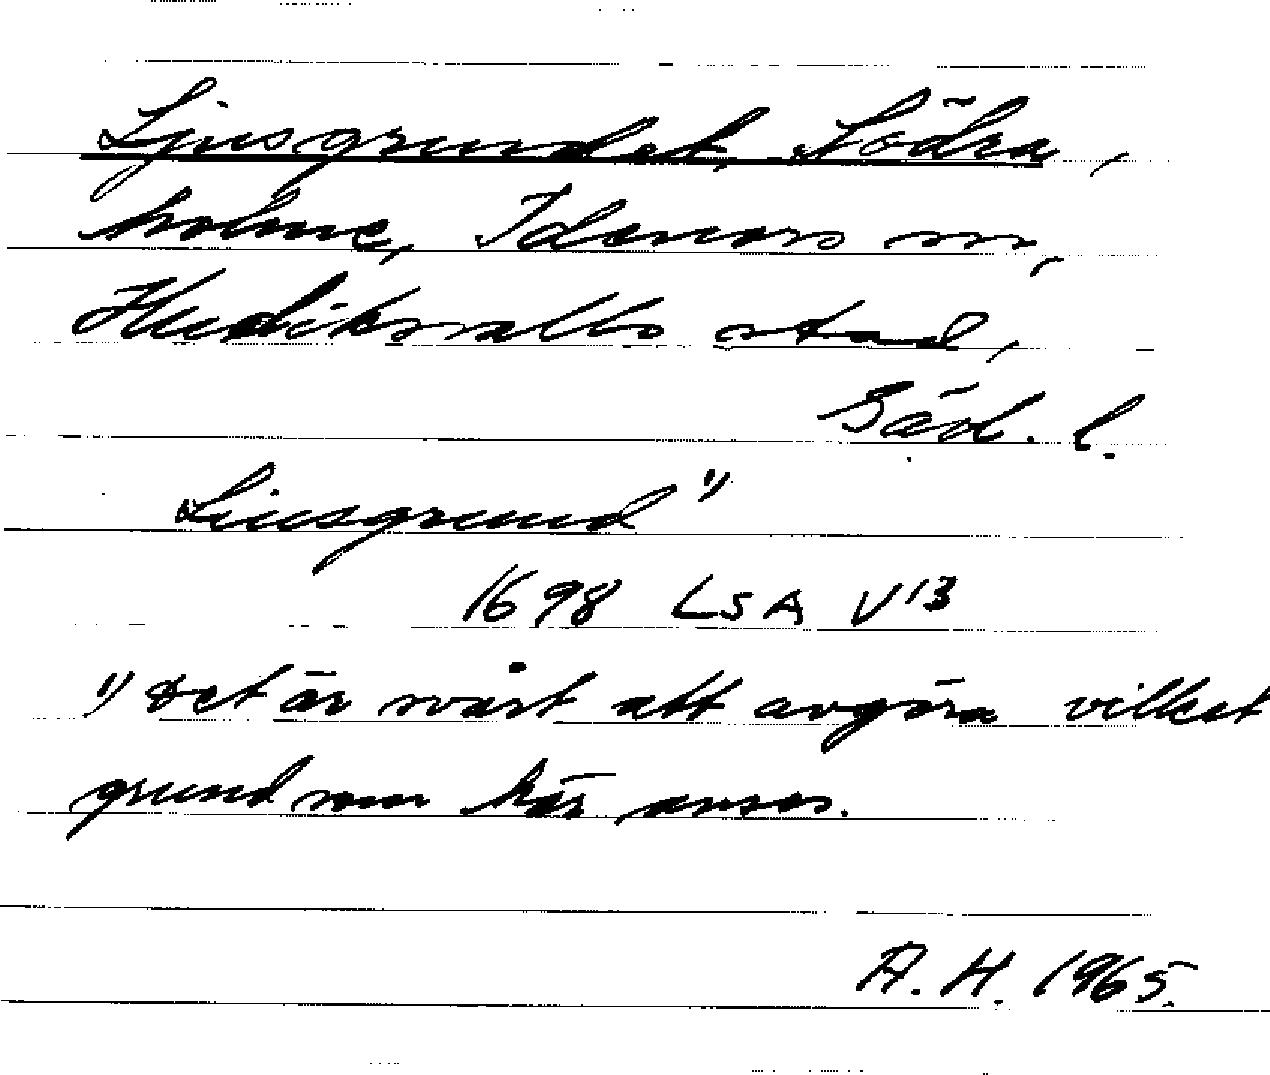 Ljusgrundet, Södra,
holme, Idenors sn,
Hudiksvalls stad,
Gävl. l.
Liusgrund 1)
1698 LSA V 13
1) Det är svårt att avgöra vilket
grund som här avses.
A. H. 1965.